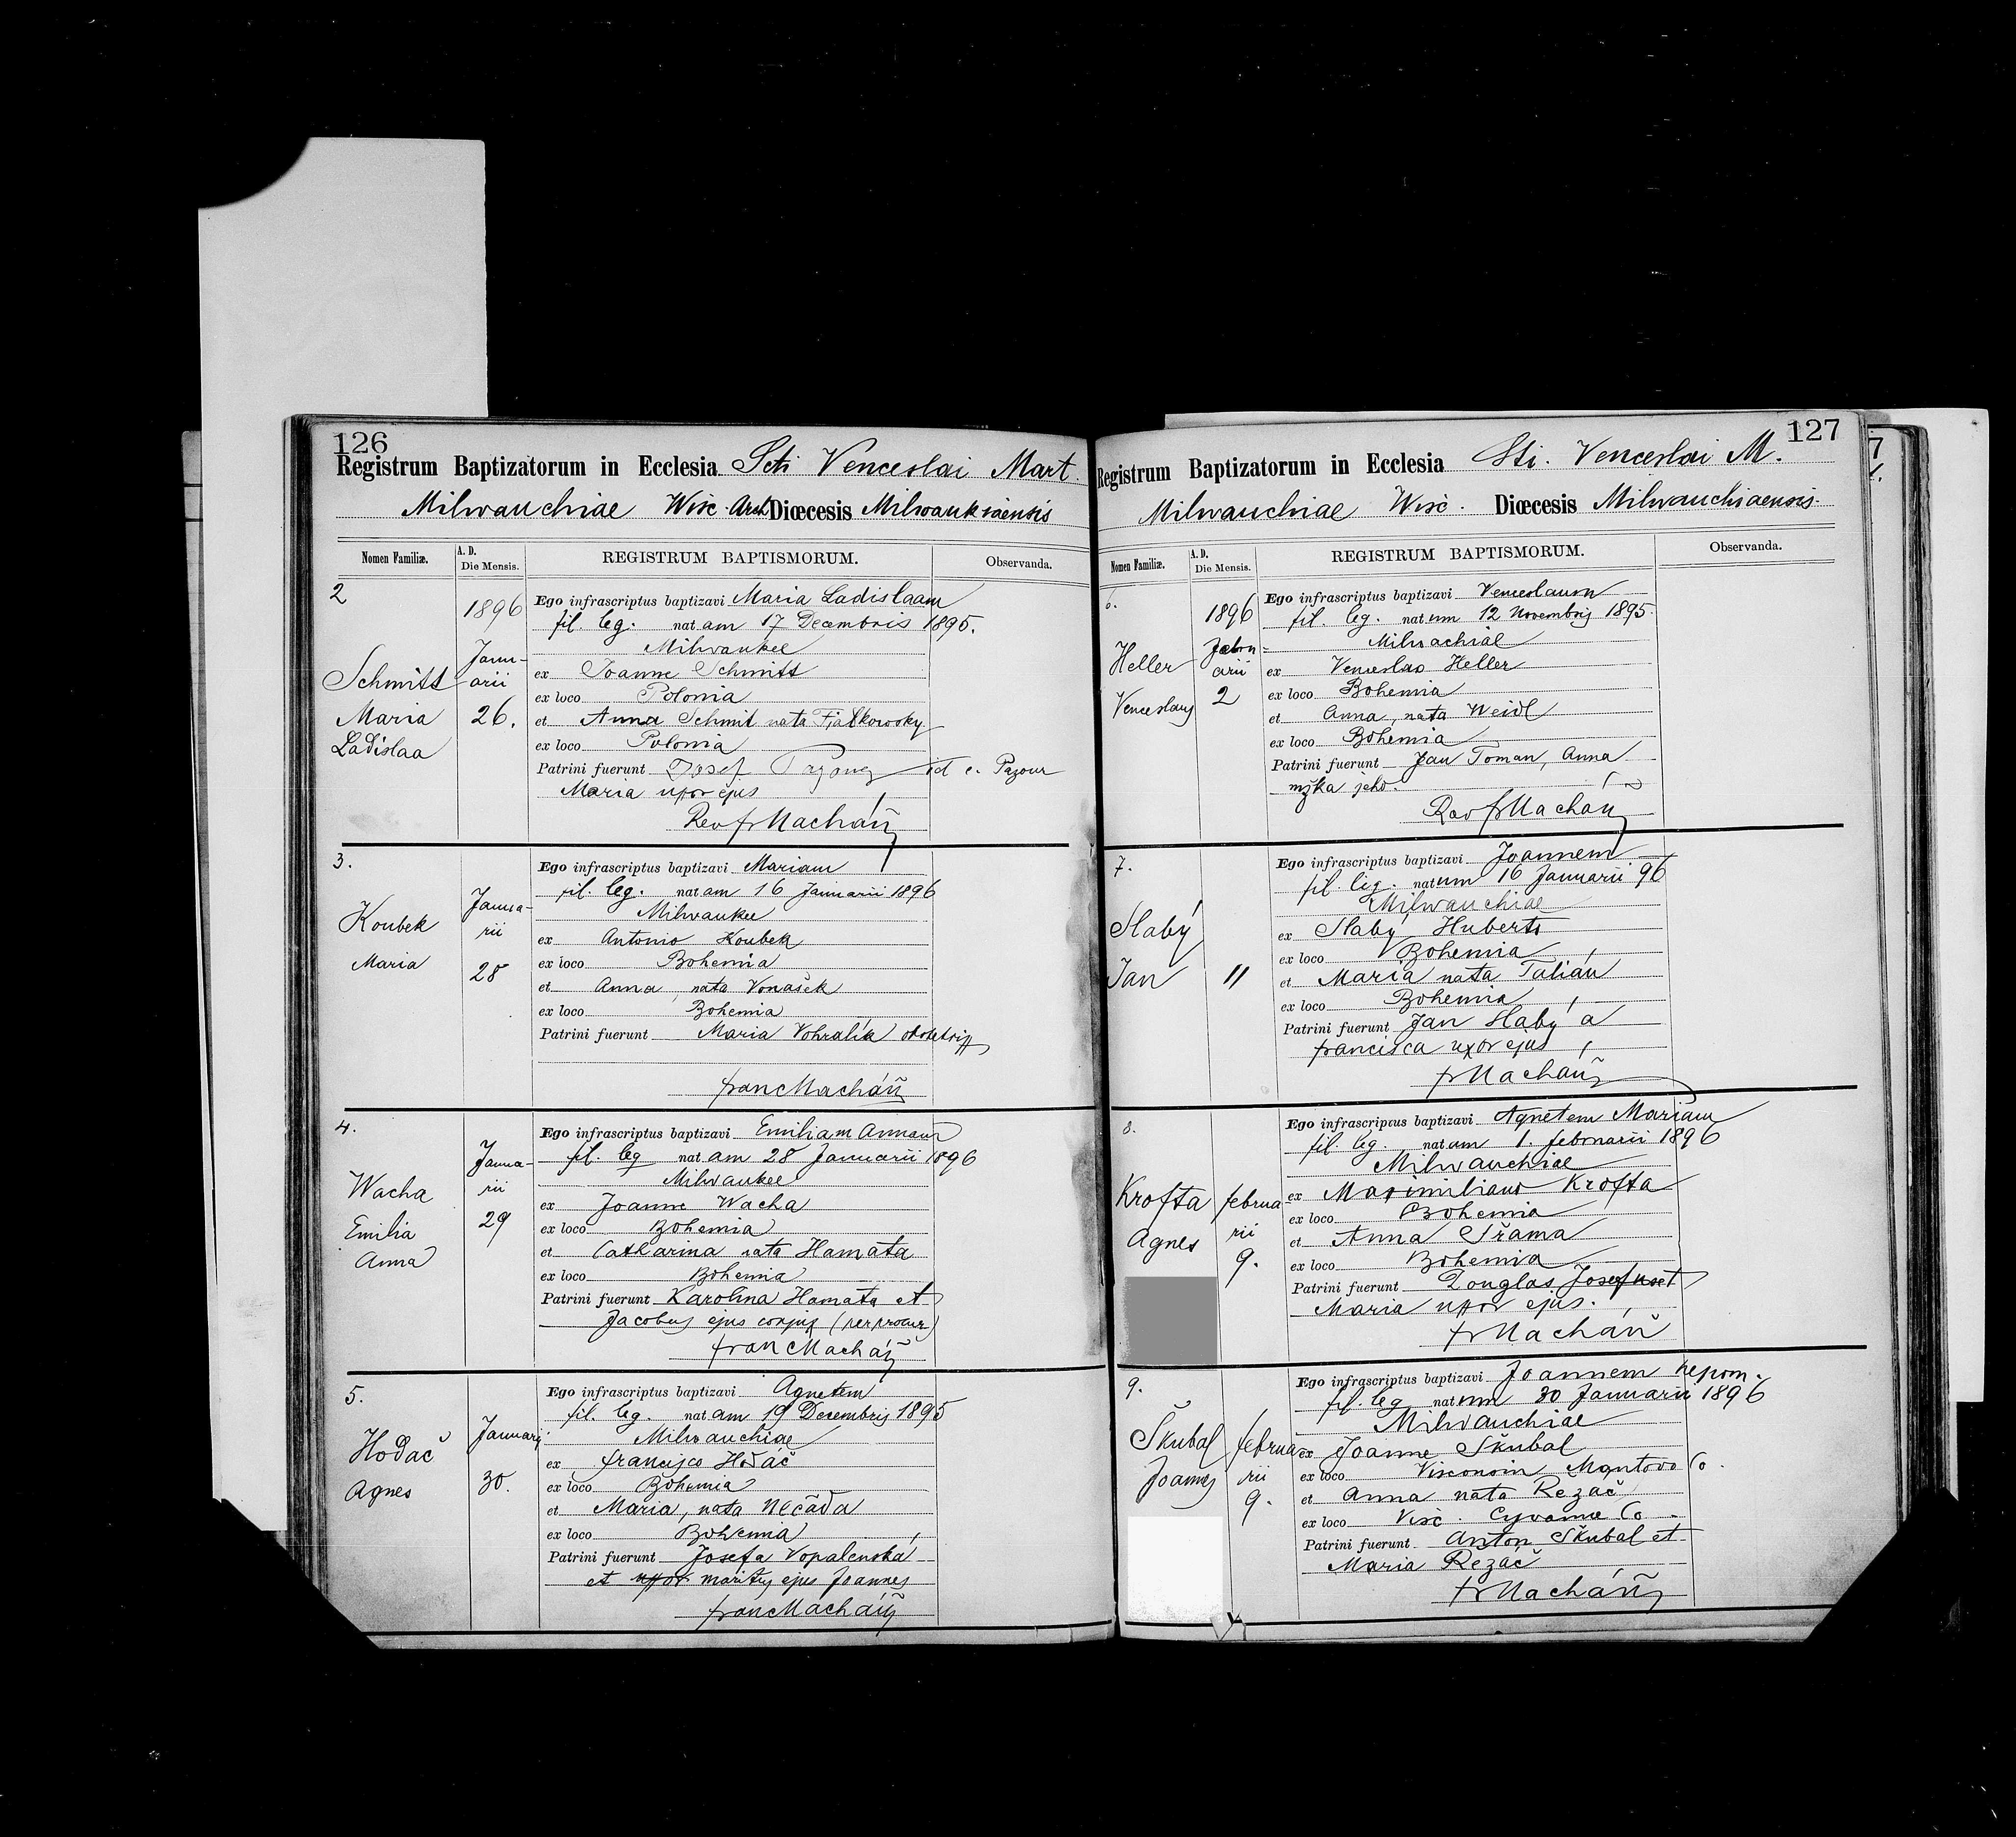 126
Registrum Baptizatorum in Ecclesia Scti Venceslai Mart.
Milwauchiae Wisc. Arch Diœcesis Milwaukiaensis
Nomen Familiæ. A. D. Die Mensis. REGISTRUM BAPTISMORUM. Observanda.
2
1896
Janu-
arii
26.
Schmitt
Maria
Ladislaa
Ego infrascriptus baptizavi Maria Ladislaam
fil. leg. nat am 17 Decembris 1895.
Milwaukee
ex Joanne Schmitt
ex loco Polonia
et Anna Schmit nata Fjalkowsky
ex loco Polonia
Patrini fuerunt Josef Pazour id e. Pazour
Maria uxor ejus
Rev fr Macháň
3.
Koubek
Maria
Janua-
rii
28
Ego infrascriptus baptizavi Mariam
fil. leg. nat am 16 Januarii 1896
Milwaukee
ex Antonio Koubek
ex loco Bohemia
et Anna, nata Vonašek
ex loco Bohemia
Patrini fuerunt Maria Vohralík obstetrix
fran Macháň
4.
Wacha
Emilia
Anna
Janua-
rii
29
Ego infrascriptus baptizavi Emiliam Annam
fil. leg nat am 28 Januarii 1896
Milwaukee
ex Joanne Wacha
ex loco Bohemia
et Catharina nata Hamata
ex loco Bohemia
Patrini fuerunt Karolina Hamata et
Jacobus ejus conjux (per procur)
fran Macháň
5.
Hodač
Agnes
Januarij
30.
Ego infrascriptus baptizavi Agnetem
fil. leg. nat am 19 Decembris 1895
Milwauchiae
ex francisco Hodáč
ex loco Bohemia
et Maria, nata Nečada
ex loco Bohemia
Patrini fuerunt Josefa Vopalenská
et uxor maritus ejus Joannes
fran Macháň
127
Registrum Baptizatorum in Ecclesia Sti. Venceslai M.
Milwauchiae Wisc. Diœcesis Milwauchiaensis
Nomen Familiæ. A. D. Die Mensis. REGISTRUM BAPTISMORUM. Observanda.
6.
Heller
Venceslaus
1896
Febru-
arii
2
Ego infrascriptus baptizavi Venceslaum
fil. leg. nat um 12 Novembris 1895
Milwachiae
ex Venceslao Heller
ex loco Bohemia
et Anna, nata Weidl
ex loco Bohemia
Patrini fuerunt Jan Toman, Anna
mžka jeho.
Rev fr Macháň
7.
Slabý
Jan
"
Ego infrascriptus baptizavi Joannem
fil. leg. nat um 16 Januarii 96
Milwauchiae
ex Slabý Huberto
ex loco Bohemia
et Maria nata Talián
ex loco Bohemia
Patrini fuerunt Jan Slabý a
francisca uxor ejus
fr Macháň
8.
Krofta
Agnes
februa
rii
9.
Ego infrascriptus baptizavi Agnetem Mariam
fil. leg. nat am 1. februarii 1896
Milwauchiae
ex Maximiliano Krofta
ex loco Bohemia
et Anna Šrama
ex loco Bohemia
Patrini fuerunt Douglas Josefus et
Maria uxor ejus.
fr Macháň
9.
Škubal
Joannes
februa
rii
9.
Ego infrascriptus baptizavi Joannem Nepom.
fil. leg nat um 30 Januarii 1896
Milwauchiae
ex Joanne Škubal
ex loco Visconsin Mantovo Co.
et Anna nata Rezáč
ex loco Visc. Co
Patrini fuerunt Anton Škubal et
Maria Rezáč
fr Macháň
7